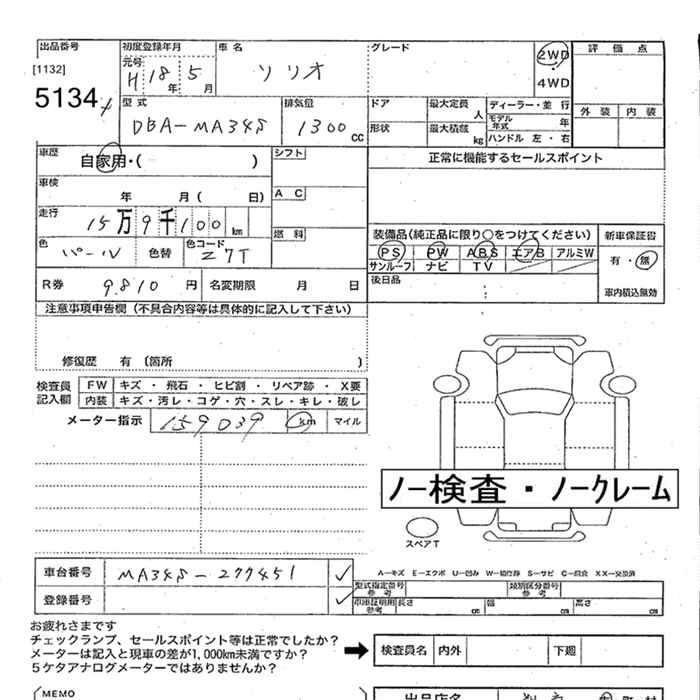 出品番号 初度登録年月 車名 グレード 2WD ・ 4WD 評価点
[1132]
5134
元号 H 18 年 5 月 ソリオ
外装 内装
型式 排気量 ドア 最大定員 人 ディーラー・並行
DBA-MA34S 1300 CC 形状 最大積載 kg モデル年式 年
ハンドル 左・右
車歴 自家用・( ) シフト 正常に機能するセールスポイント
車検 年 月 ( 日) AC
走行 15万9千100 km 燃料 装備品(純正品に限り○をつけてください) 新車保証書
色 パール 色替 色コード Z7T PS PW ABS エアB アルミW 有・無
サンルーフ ナビ TV
R券 9,810 円 名変期限 月 日 後日品 車内積込無効
注意事項申告欄 (不具合内容等は具体的に記入して下さい)
修復歴 有 (箇所 )
検査員記入欄 FW キズ・飛石・ヒビ割・リペア跡・X要
内装 キズ・汚レ・コゲ・穴・スレ・キレ・破レ
メーター指示 159039 km マイル
ノー検査・ノークレーム
スペアT
車台番号 MA34S-277451
A-キズ E-エクボ U-凹み S-サビ XX-交換済
登録番号
型式指定番号 参考 類別区分番号 参考
車庫証明用 参考 長さ cm 幅 cm 高さ cm
お疲れさまです
チェックランプ、セールスポイント等は正常でしたか?
メーターは記入と現車の差が1,000km未満ですか? 検査員名 内外 下廻
5ケタアナログメーターではありませんか?
MEMO 出品店名